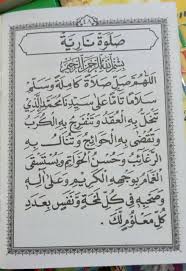 صلوة نارية
بسم الله الرحمن الرحيم
اللهم صل صلاة كاملة وسلم
سلاما تاما على سيدنا محمد الذي
تنحل به العقد وتنفرج به الكرب
وتقضى به الحوائج وتنال به
الرغائب وحسن الخواتم ويستسقى
الغمام بوجهه الكريم وعلى اله
وصحبه في كل لمحة ونفس بعدد
كل معلوم لك